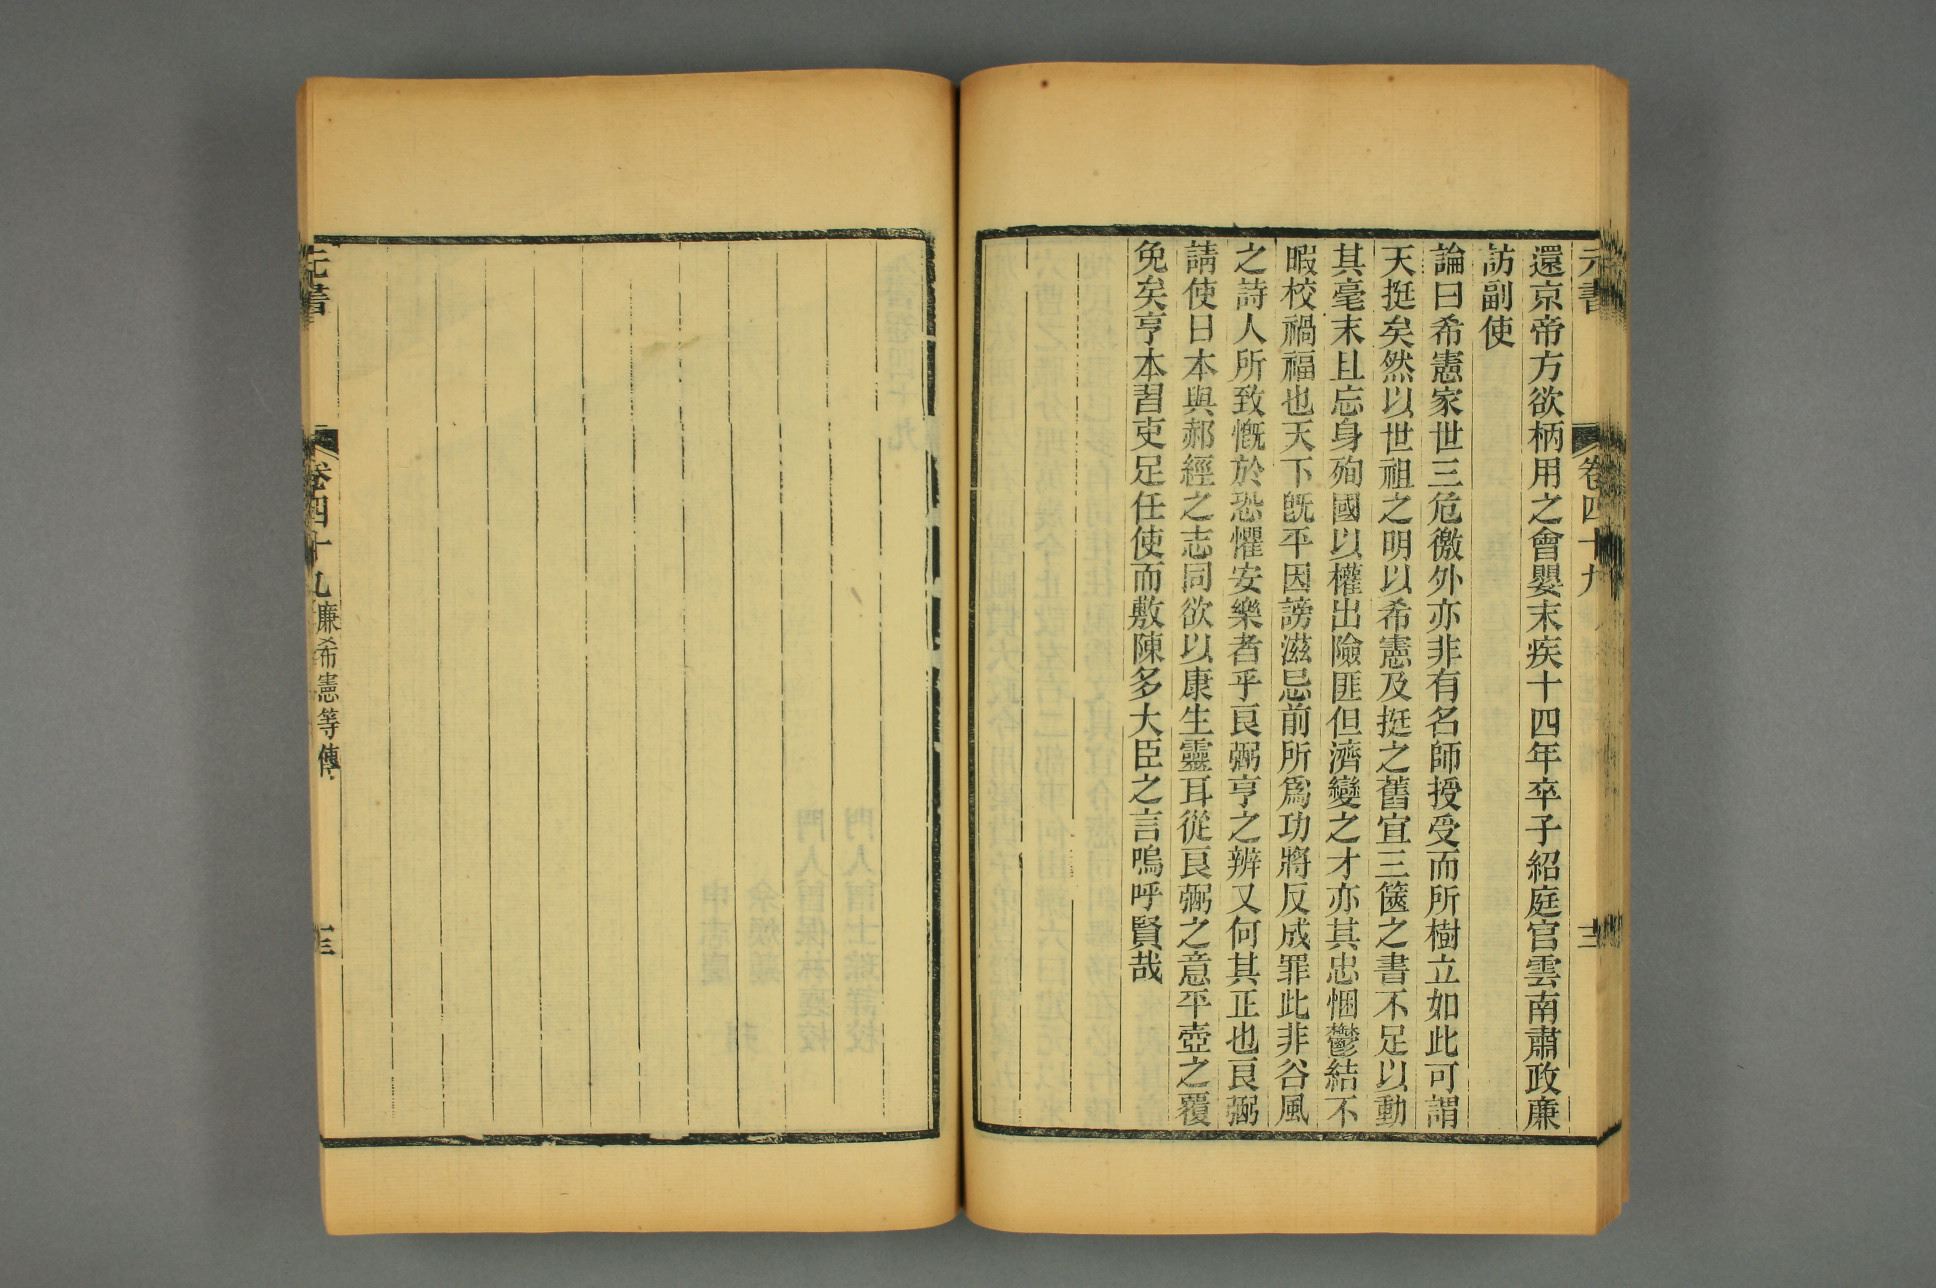 元書 卷四十九
還京帝方欲柄用之會嬰末疾十四年卒子紹庭官雲南肅政廉
訪副使
論曰希憲家世三危徼外亦非有名師授受而所樹立如此可謂
天挺矣然以世祖之明以希憲及挺之舊宜三篋之書不足以動
其毫末且忘身殉國以權出險匪但濟變之才亦其忠悃鬱結不
暇校禍福也天下旣平因謗滋忌前所爲功將反成罪此非谷風
之詩人所致慨於恐懼安樂者乎良弼亨之辨又何其正也良弼
請使日本與郝經之志同欲以康生靈耳從良弼之意平壺之覆
免矣亨本習吏足任使而敷陳多大臣之言嗚呼賢哉
元書 卷四十九 廉希憲等傳